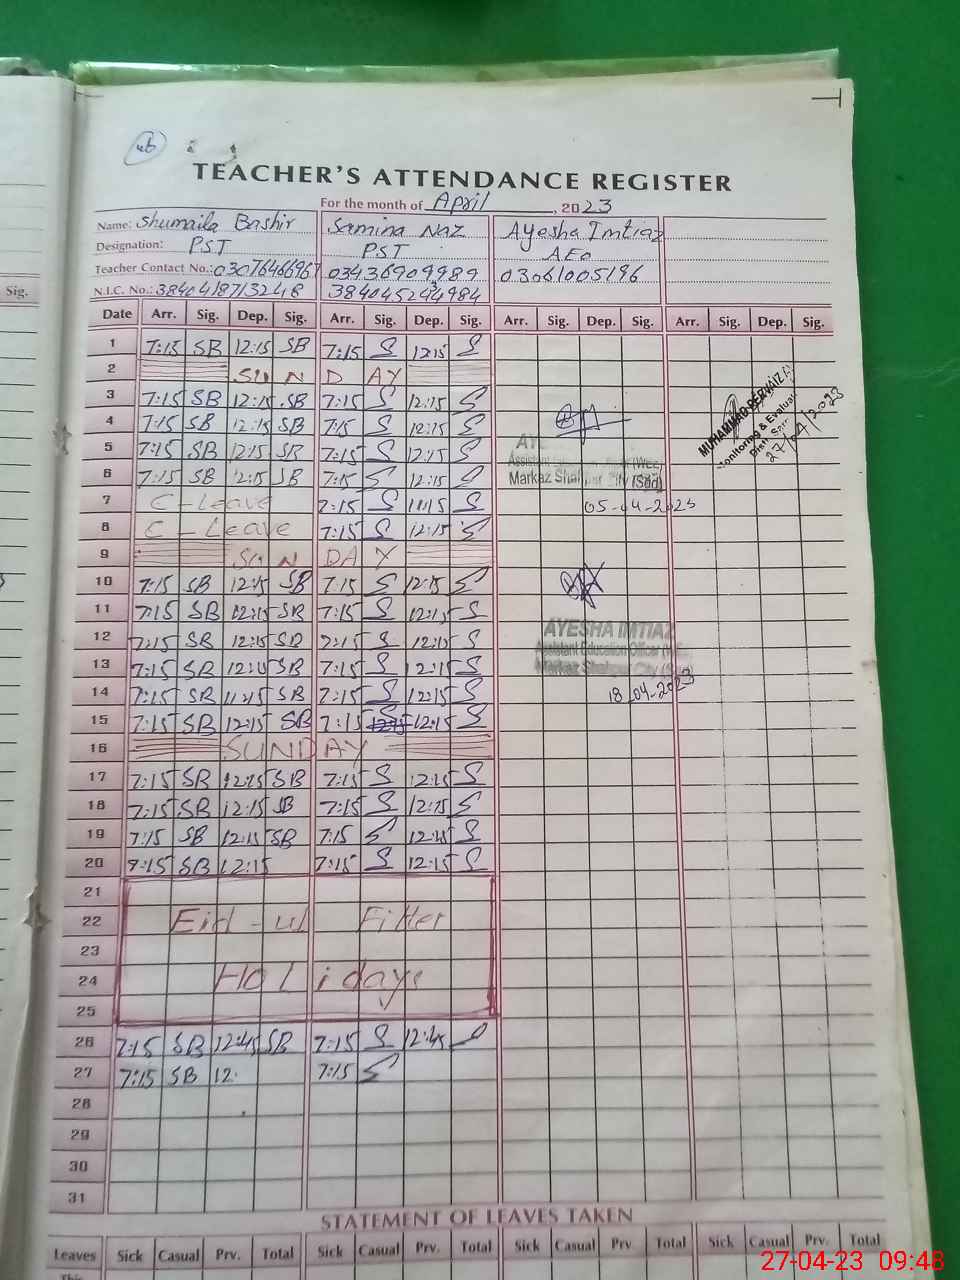 46
TEACHER'S ATTENDANCE REGISTER
For the month of April, 2023
Name: Shumaila Bashir Samina Naz Ayesha Imtiaz
Designation: PST PST AEO
Teacher Contact No.: 03436909989 03061005196
N.I.C. No.:
Sig.
Date Arr. Sig. Dep. Sig. Arr. Sig. Dep. Sig. Arr. Sig. Dep. Sig. Arr. Sig. Dep. Sig.
1 7:15 SB 12:15 SB 7:15 S 12:15 S
2 SUNDAY
3 7:15 SB 12:15 SB 7:15 S 12:15 S
4 7:15 SB 12:15 SB 7:15 S 12:15 S
5 7:15 SB 12:15 SB 7:15 S 12:15 S
6 7:15 SB 12:15 SB 7:15 S 12:15 S
Markaz Shahpur City (Sgd)
MUHAMMAD PERVAIZ
Monitoring & Evaluat
27/04/2023
7 C-Leave 7:15 S 11:15 S
05-04-2023
8 C-Leave 7:15 S 12:15 S
9 SUNDAY
10 7:15 SB 12:15 SB 7:15 S 12:15 S
11 7:15 SB 12:15 SB 7:15 S 12:15 S
12 7:15 SB 12:15 SB 7:15 S 12:15 S
AYESHA IMTIAZ
Assistant Education Officer
Markaz Shahpur City (Sgd)
13 7:15 SB 12:15 SB 7:15 S 12:15 S
14 7:15 SB 11:15 SB 7:15 S 12:15 S
18-04-2023
15 7:15 SB 12:15 SB 7:15 S 12:15 S
16 SUNDAY
17 7:15 SB 12:15 SB 7:15 S 12:15 S
18 7:15 SB 12:15 SB 7:15 S 12:15 S
19 7:15 SB 12:15 SB 7:15 S 12:15 S
20 7:15 SB 12:15 7:15 S 12:15 S
21
22 Eid-ul Fitter
23
24 Holidays
25
26 7:15 SB 12:45 SB 7:15 S 12:45
27 7:15 SB 12: 7:15 S
28
29
30
31
STATEMENT OF LEAVES TAKEN
Leaves Sick Casual Prv. Total Sick Casual Prv. Total Sick Casual Prv. Total Sick Casual Prv. Total
This
27-04-23 09:48